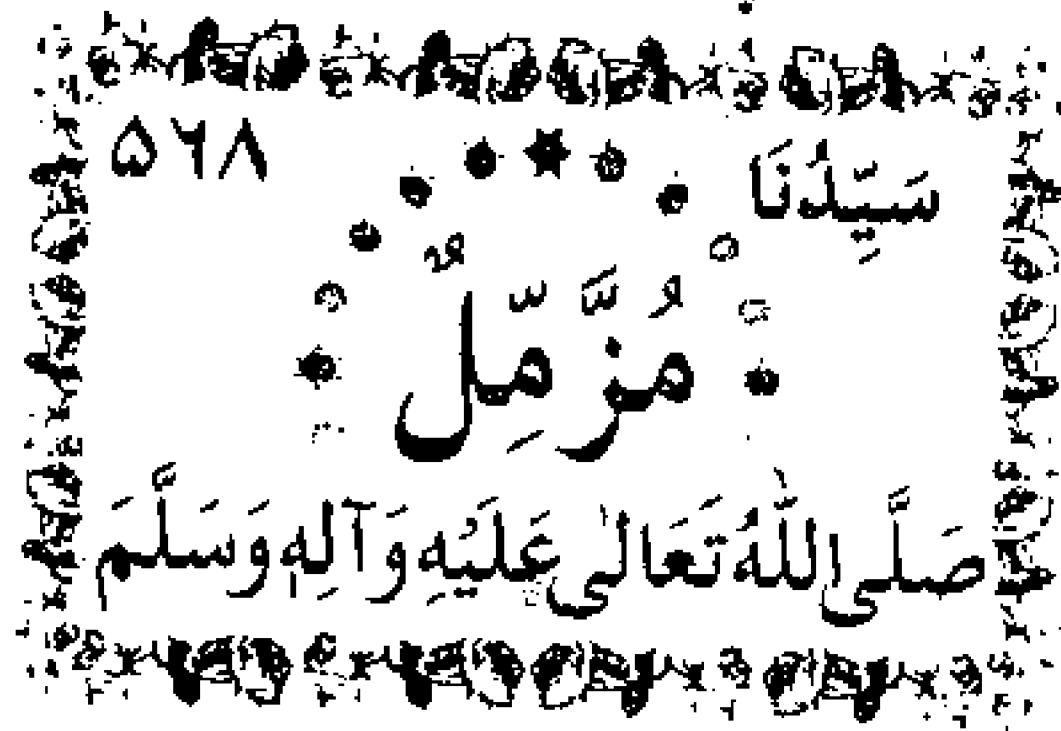 سَيِّدُنَا ۵۲۸
مُزَّمِّلٌ
صَلَّى اللّٰهُ تَعَالىٰ عَلَيْهِ وَآلِهٖ وَسَلَّمَ